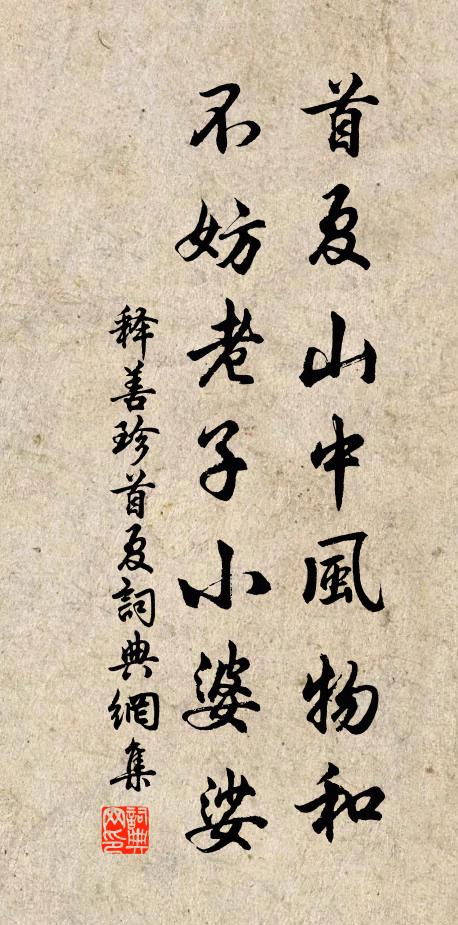 首夏山中風物和
不妨老子小婆娑
释善珍首夏詞典網集
詞典网印